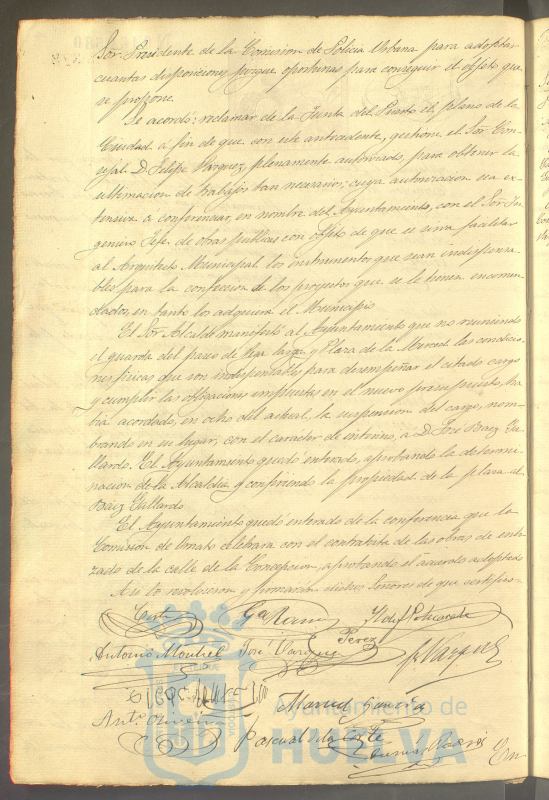 Sor. Presidente de la Comision de Policia Urbana para adoptar
cuantas disposiciones juzgue oportunas para conseguir el objeto que
se propone.
Se acordó: reclamar de la Junta del Puerto el plano de la
Ciudad a fin de que con este antecedente, gestione el Sor. Con-
cejal D. Felipe Vazquez, plenamente autorizado, para obtener la
ultimacion de trabajos tan necesarios; cuya autorizacion sea ex-
tensiva a conferenciar, en nombre del Ayuntamiento, con el Sor. In-
geniero Jefe de obras publicas con objeto de que se sirva facilitar
al Arquitecto Municipal los instrumentos que sean indispensa-
bles para la confeccion de los proyectos que se le tienen encomen-
dados, en tanto los adquiera el Municipio.
El Sor. Alcalde manifestó al Ayuntamiento que no reuniendo
el guarda del paseo de Vega larga y Plaza de la Merced las condicio-
nes fisicas que son indispensables para desempeñar el citado cargo
y cumplir las obligaciones impuestas en el nuevo presupuesto, ha-
bia acordado, en ocho del actual, la suspension del cargo, nom-
brando en su lugar, con el caracter de interino, a D. José Baez Ga-
llardo. El Ayuntamiento quedó enterado, aprobando la determi-
nacion de la Alcaldia y confiriendo la propiedad de la plaza al
Baez Gallardo.
El Ayuntamiento quedó enterado de la conferencia que la
Comision de Ornato celebrara con el contratista de las obras de enlo-
zado de la calle de la Concepcion, aprobando el acuerdo adoptado
Asi lo resolvieron y firmaron dichos Señores de que certifico.
Antonio Montiel José Vazquez Perez F Vazquez
Manuel Garcia
Ant.
Pascual
Ayuntamiento de
HUELVA